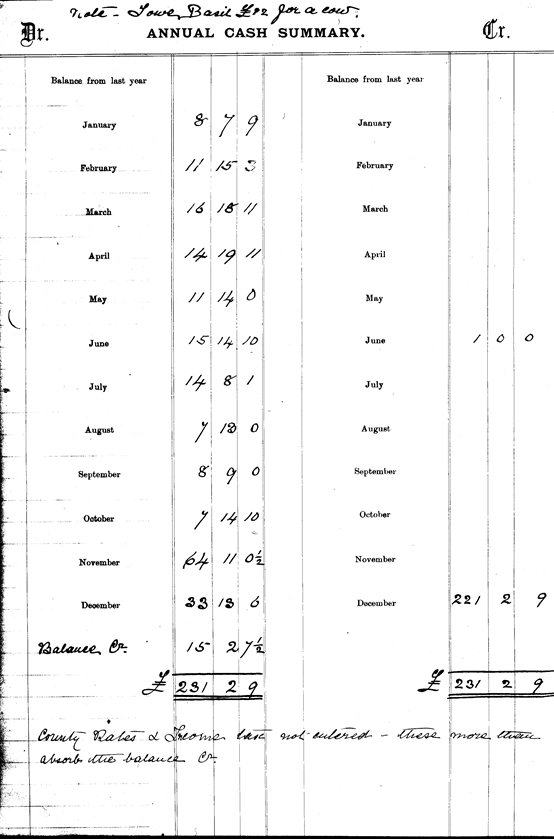 Note - I owe Basil £12 for a cow.
Dr. ANNUAL CASH SUMMARY. Cr.
Balance from last year Balance from last year
January 8 7 9 January
February 11 15 3 February
March 16 18 11 March
April 14 19 11 April
May 11 14 0 May
June 15 14 10 June 1 0 0
July 14 8 1 July
August 7 13 0 August
September 8 9 0 September
October 7 14 10 October
November 64 11 0½ November
December 33 13 6 December 221 2 9
Balance Cr. 15 2 7½
£ 231 2 9 £ 231 2 9
County Rates & Income tax not entered - these more than
absorb the balance Cr.